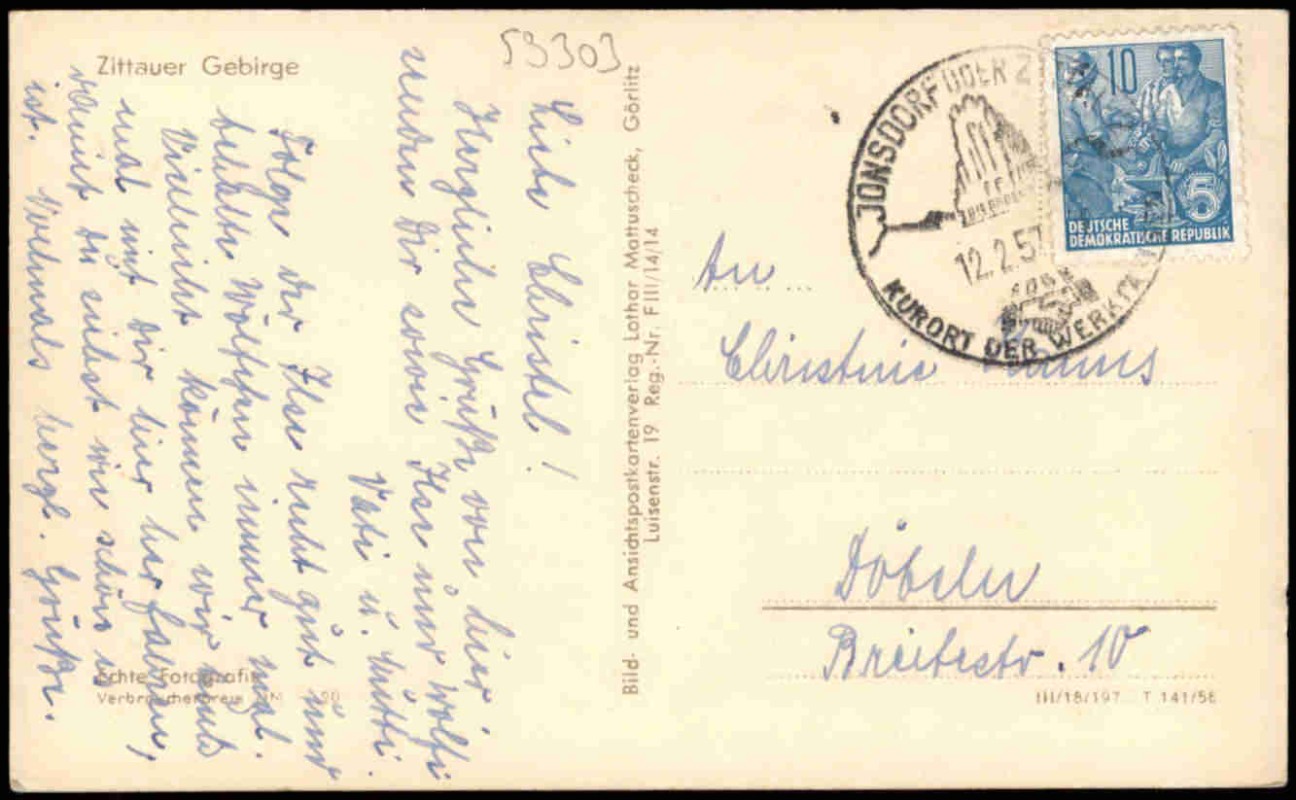 53303
Zittauer Gebirge
Liebe Christel!
Herzliche Grüße von hier
senden Dir sowie Ilse und Wolfi
Vati u. Mutti.
Folge der Ilse recht gut und
Wölfchen immer mal.
Vielleicht können wir
mal mit Dir hier her fahren,
damit Du siehst wie schön es
ist. Nochmals herzl. Grüße.
Echte Fotografie
Verbraucherpreis DM
Bild- und Ansichtspostkartenverlag Lothar Mattuscheck, Görlitz
Luisenstr. 19 Reg.-Nr. F III/14/14
JONSDORF ÜBER Z
12.2.57
KURORT DER WERKTÄ
10
5
DEUTSCHE
DEMOKRATISCHE REPUBLIK
An
Christine
Döbeln
Breitestr. 10
III/18/197 T 141/56